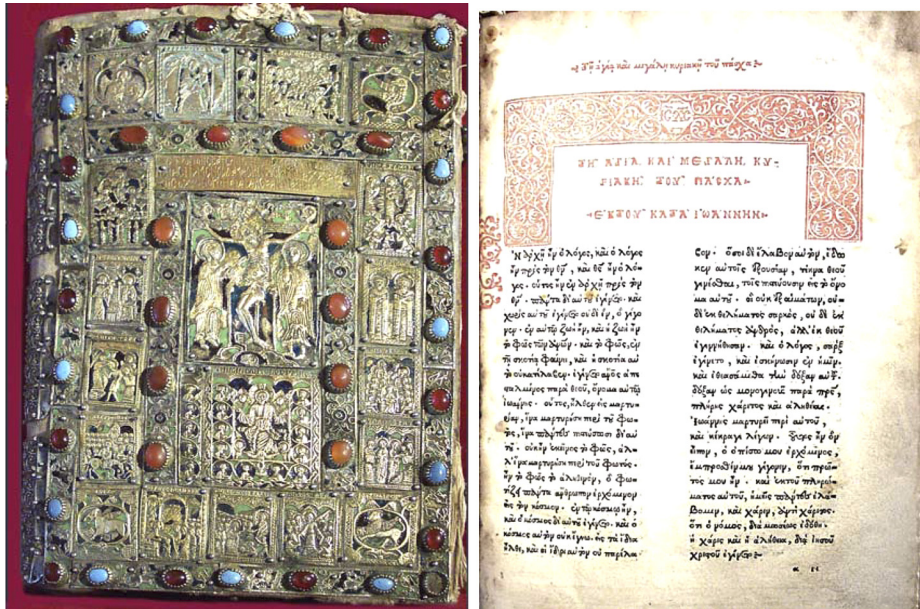 Τῇ ἁγίᾳ καὶ μεγάλῃ κυριακῇ τοῦ πάσχα
ΤΗ͂ ἉΓΙΑ, ΚΑΙ ΜΕΓΑΛΗ ΚΥ-
ΡΙΑΚΗ͂ ΤΟΥ͂ ΠΑΣΧΑ
ἘΚ ΤΟΥ ΚΑΤΑ ἸΩΑΝΝΗΝ
Ν ἀρχῇ ἦν ὁ λόγος, καὶ ὁ λόγος
ἦν πρὸς τὸν θν, καὶ θς ἦν ὁ λό-
γος. οὗτος ἦν ἐν ἀρχῇ πρὸς τὸν
θν. πάντα δι αὐτοῦ ἐγένετο. καὶ
χωρὶς αὐτοῦ ἐγένετο οὐδὲ ἕν, ὃ γέγο
νεν. ἐν αὐτῷ ζωὴ ἦν, καὶ ἡ ζωὴ ἦν
τὸ φῶς τῶν ἀνων. καὶ τὸ φῶς, ἐν
τῇ σκοτίᾳ φαίνει, καὶ ἡ σκοτία αὐ
τὸ οὐ κατέλαβεν. ἐγένετο ανος ἀπε
σταλμένος παρὰ θεοῦ, ὄνομα αὐτῷ
ἰωάννης. οὗτος, ἦλθεν εἰς μαρτυ
ρίαν, ἵνα μαρτυρήσῃ περὶ τοῦ φω-
τός, ἵνα πάντες πιστεύσωσι δι αὐ
τοῦ. οὐκ ἦν ἐκεῖνος τὸ φῶς, ἀλ-
λ ἵνα μαρτυρήσῃ περὶ τοῦ φωτός.
ἦν τὸ φῶς τὸ ἀληθινόν, ὃ φω-
τίζει πάντα ἄνθρωπον ἐρχόμενον
εἰς τὸν κόσμον. ἐν τῷ κόσμῳ ἦν,
καὶ ὁ κόσμος δι αὐτοῦ ἐγένετο. καὶ ὁ
κόσμος αὐτὸν οὐκ ἔγνω. εἰς τὰ ἴδια
ἦλθε, καὶ οἱ ἴδιοι αὐτὸν οὐ παρέλα-
βον. ὅσοι δὲ ἔλαβον αὐτὸν, ἔδω
κεν αὐτοῖς ἐξουσίαν, τέκνα θεοῦ
γενέσθαι, τοῖς πιστεύουσιν εἰς τὸ ὄνο
μα αὐτοῦ. οἳ οὐκ ἐξ αἱμάτων, οὐ-
δὲ ἐκ θελήματος σαρκός, οὐ δὲ ἐκ
θελήματος ἀνδρὸς, ἀλλ ἐκ θεοῦ
ἐγεννήθησαν. καὶ ὁ λόγος, σαρξ
ἐγένετο, καὶ ἐσκήνωσεν ἐν ἡμῖν.
καὶ ἐθεασάμεθα τὴν δόξαν αὐτοῦ.
δόξαν ὡς μονογενοῦς παρὰ πρς,
πλήρης χάριτος καὶ ἀληθείας.
Ἰωάννης μαρτυρεῖ περὶ αὐτοῦ,
καὶ κέκραγε λέγων. οὗτος ἦν ὃν
εἶπον, ὁ ὀπίσω μου ἐρχόμενος,
ἔμπροσθέν μου γέγονεν, ὅτι πρῶ-
τός μου ἦν. καὶ ἐκ τοῦ πληρώ-
ματος αὐτοῦ, ἡμεῖς πάντες ἐλά-
βομεν, καὶ χάριν, ἀντὶ χάριτος.
ὅτι ὁ νόμος, διὰ μωσέως ἐδόθη.
ἡ χάρις καὶ ἡ ἀλήθεια, διὰ ἰησοῦ
χριστοῦ ἐγένετο